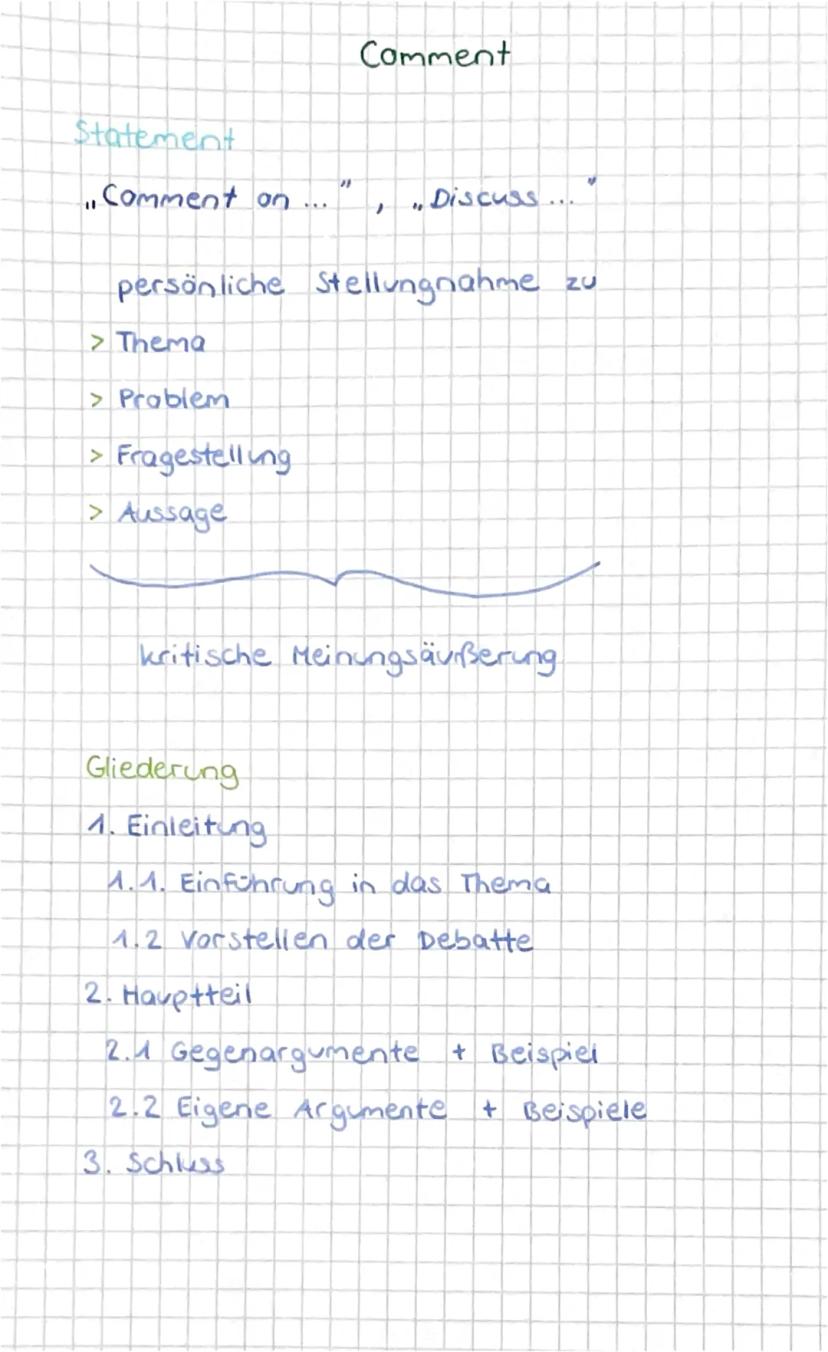 Comment
Statement
„Comment on ...", „Discuss ..."
persönliche Stellungnahme zu
> Thema
> Problem
> Fragestellung
> Aussage
kritische Meinungsäußerung
Gliederung
1. Einleitung
1.1. Einführung in das Thema
1.2 Vorstellen der Debatte
2. Hauptteil
2.1 Gegenargumente + Beispiel
2.2 Eigene Argumente + Beispiele
3. Schluss